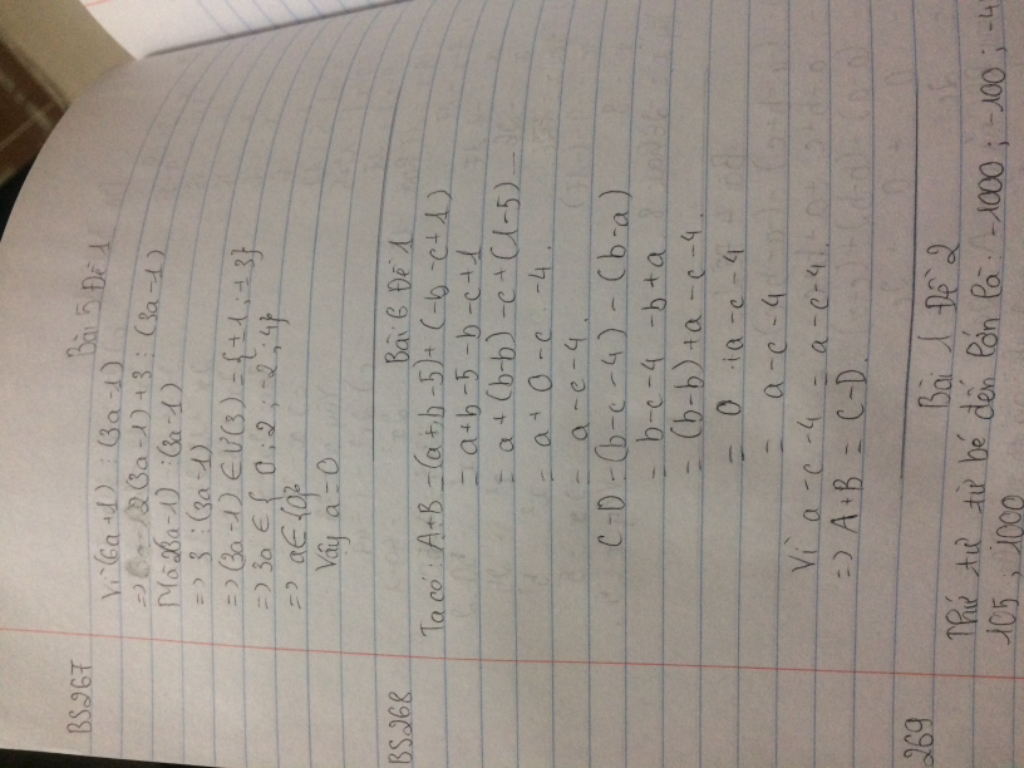 BS267 Bài 5 Đề 1
Vì (6a+1) ⋮ (3a-1)
=> 2(3a-1)+3 ⋮ (3a-1)
Mà 2(3a-1) ⋮ (3a-1)
=> 3 ⋮ (3a-1)
=> (3a-1) ∈ Ư(3) = {±1; ±3}
=> 3a ∈ {0; 2; -2; 4}
=> a ∈ {0}
Vậy a=0
BS268 Bài 6 Đề 1
Ta có: A+B=(a+b-5)+(-b-c+1)
= a+b-5-b-c+1
= a+(b-b)-c+(1-5)
= a+0-c-4
= a-c-4
C-D=(b-c-4)-(b-a)
= b-c-4-b+a
= (b-b)+a-c-4
= 0+a-c-4
= a-c-4
Vì a-c-4=a-c-4
=> A+B=C-D
269 Bài 1 Đề 2
Thứ tự từ bé đến lớn là: -1000; -100; -4
105; 1000